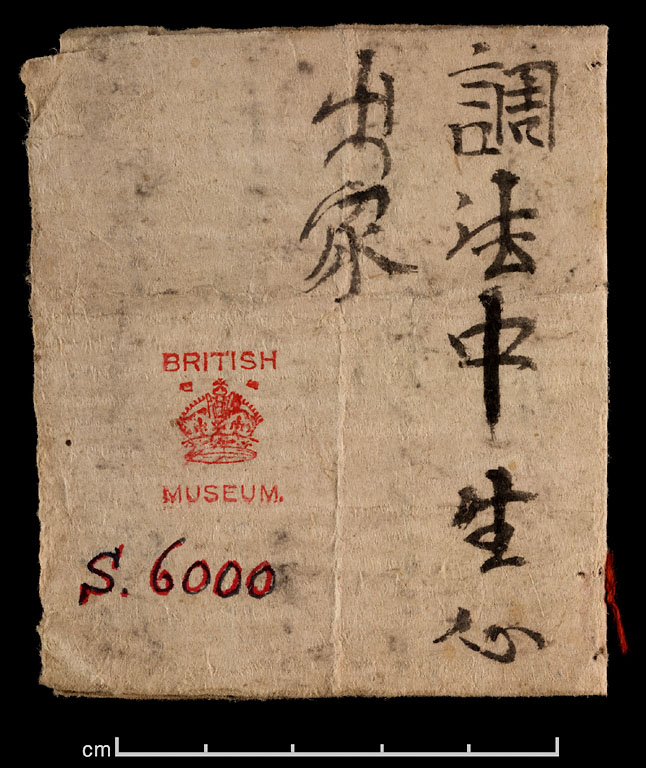 調法中生心
出家
BRITISH
MUSEUM.
S. 6000
cm